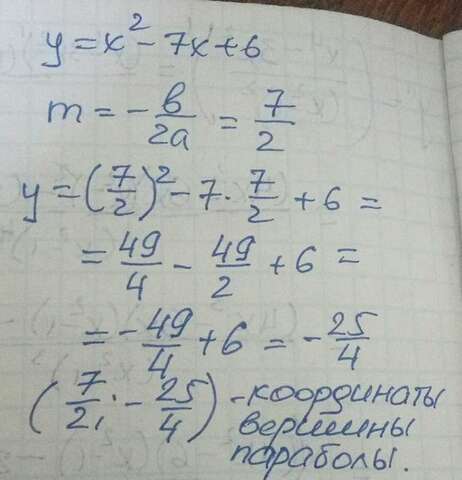 y = x² - 7x + 6
m = - в/2a = 7/2
y = (7/2)² - 7 · 7/2 + 6 =
= 49/4 - 49/2 + 6 =
= - 49/4 + 6 = - 25/4
(7/2; - 25/4) - координаты
вершины
параболы.